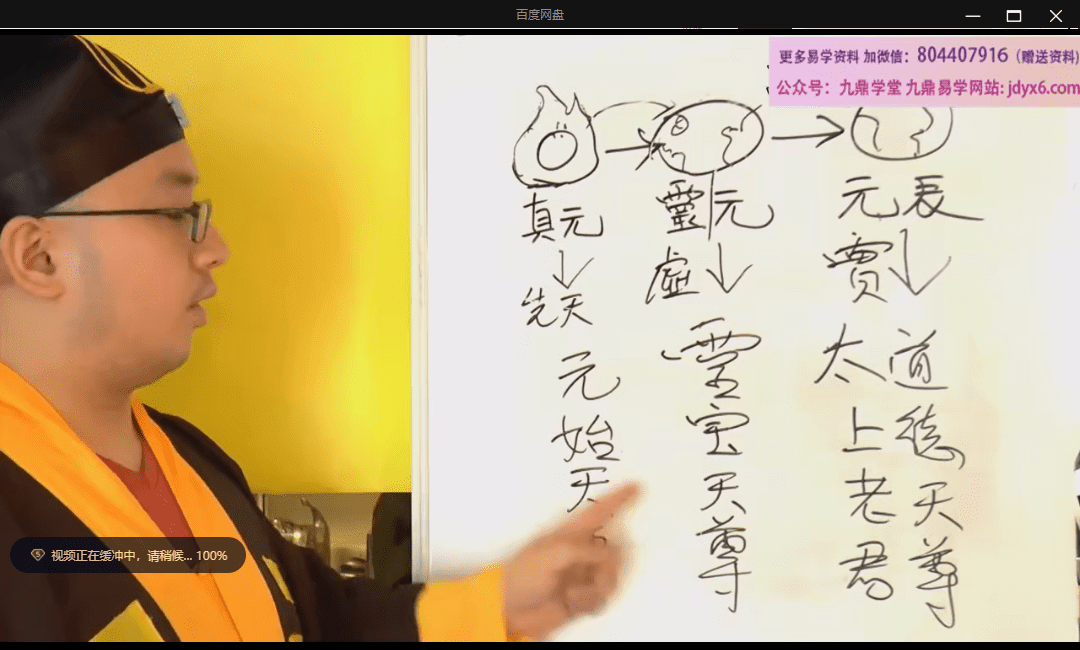 百度网盘
更多易学资料 加微信：804407916（赠送资料)
公众号：九鼎学堂 九鼎易学网站: jdyx6.com
真元
先天
元始天
靈元
虛
靈宝天尊
元
賣
太上老君
道德天尊
视频正在缓冲中，请稍候... 100%